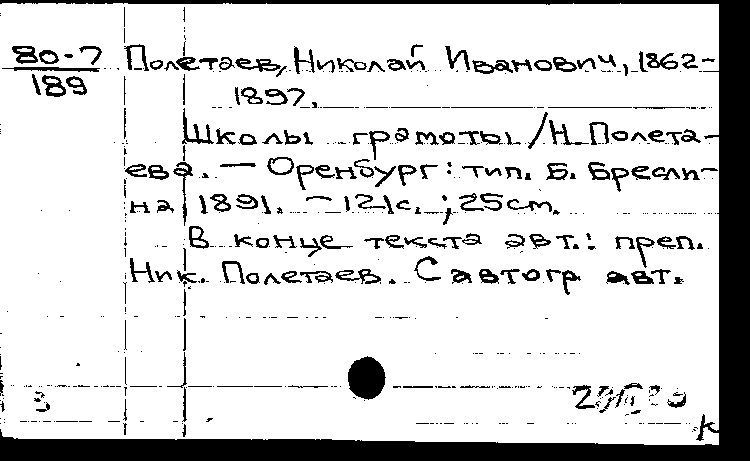 80-7 Полетаев, Николай Иванович, 1862-
189
1897.
Школы грамоты / Н. Полета-
ева. — Оренбург: тип. Б. Бресли-
на, 1891. — 121с. ; 25см.
В конце текста авт.: преп.
Ник. Полетаев. С автогр авт.
3
К